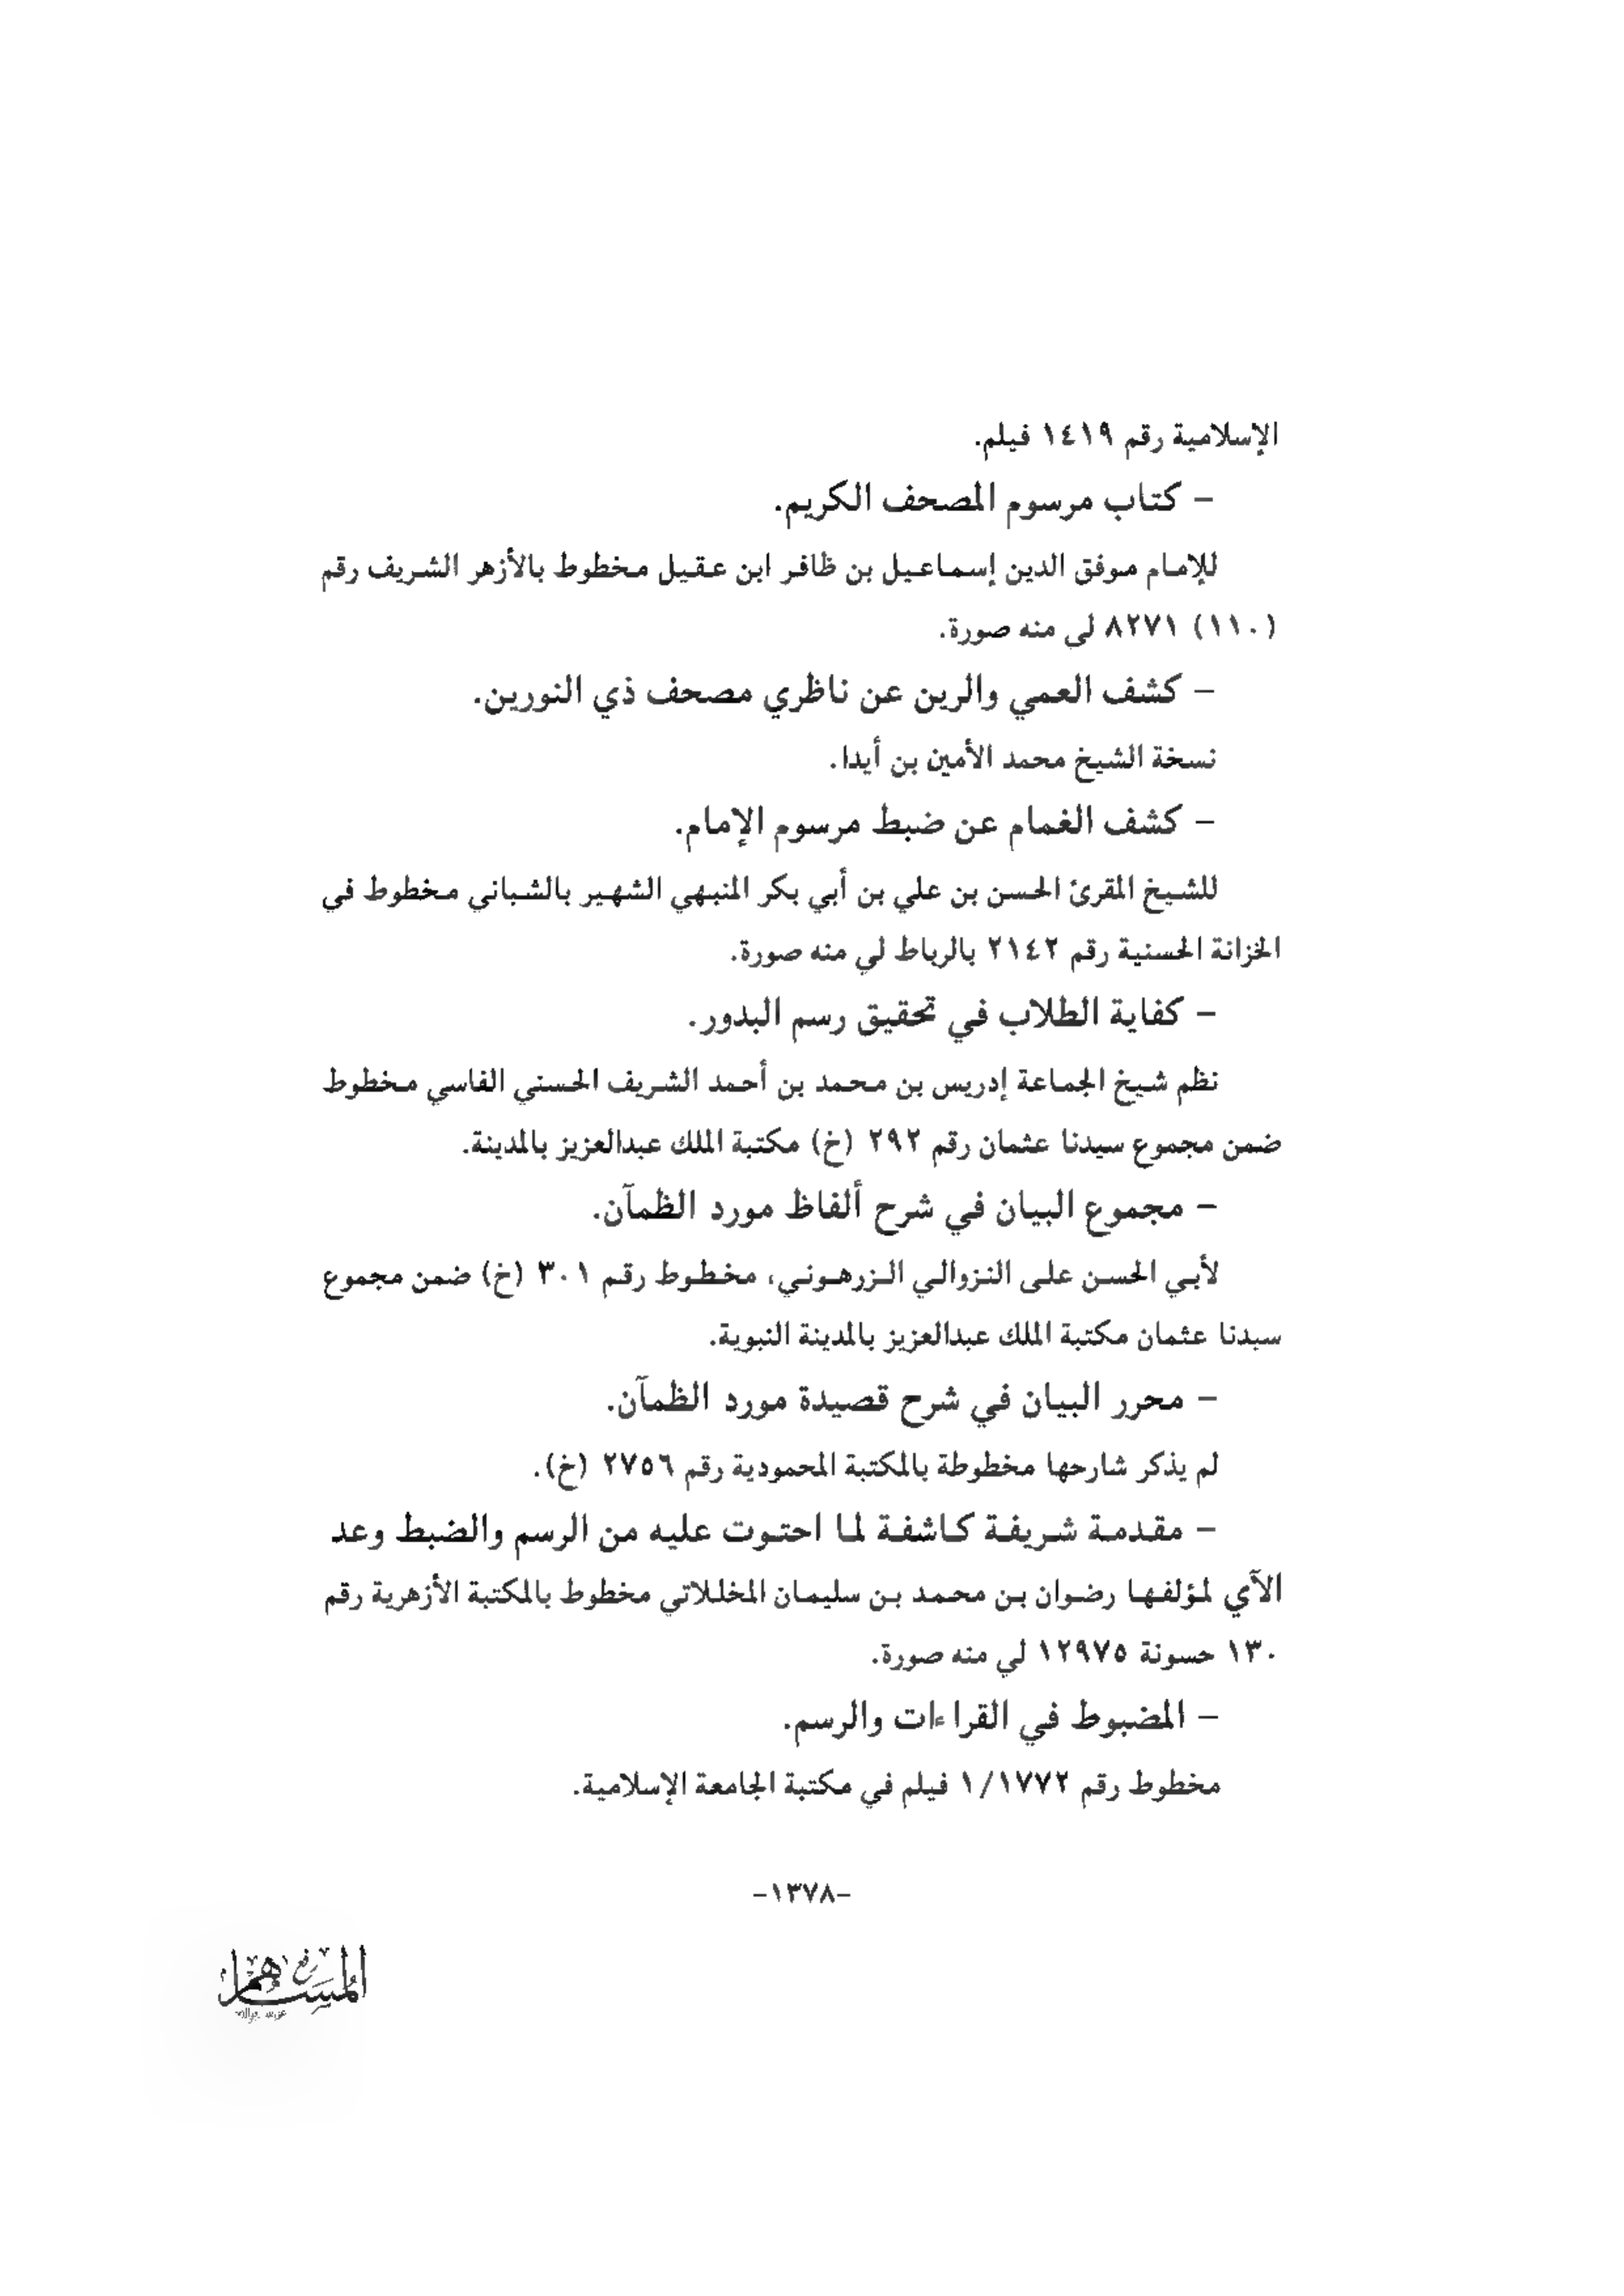 الإسلامية رقم ١٤١٩ فيلم.
– كتاب مرسوم المصحف الكريم.
للإمام موفق الدين إسماعيل بن ظافر ابن عقيل مخطوط بالأزهر الشريف رقم
(١١٠) ٨٢٧١ لي منه صورة.
– كشف العمي والرين عن ناظري مصحف ذي النورين.
نسخة الشيخ محمد الأمين بن أيدا.
– كشف الغمام عن ضبط مرسوم الإمام.
للشيخ المقرئ الحسن بن علي بن أبي بكر المنبهي الشهير بالشباني مخطوط في
الخزانة الحسنية رقم ٢١٤٢ بالرباط لي منه صورة.
– كفاية الطلاب في تحقيق رسم البدور.
نظم شيخ الجماعة إدريس بن محمد بن أحمد الشريف الحسني الفاسي مخطوط
ضمن مجموع سيدنا عثمان رقم ٢٩٢ (خ) مكتبة الملك عبدالعزيز بالمدينة.
– مجموع البيان في شرح ألفاظ مورد الظمآن.
لأبي الحسن على النزوالي الزرهوني، مخطوط رقم ٣٠١ (خ) ضمن مجموع
سيدنا عثمان مكتبة الملك عبدالعزيز بالمدينة النبوية.
– محرر البيان في شرح قصيدة مورد الظمآن.
لم يذكر شارحها مخطوطة بالمكتبة المحمودية رقم ٢٧٥٦ (خ).
– مقدمة شريفة كاشفة لما احتوت عليه من الرسم والضبط وعد
الآي لمؤلفها رضوان بن محمد بن سليمان المخللاتي مخطوط بالمكتبة الأزهرية رقم
١٣٠ حسونة ١٢٩٧٥ لي منه صورة.
– المضبوط في القراءات والرسم.
مخطوط رقم ١/١٧٧٢ فيلم في مكتبة الجامعة الإسلامية.
–١٣٧٨–